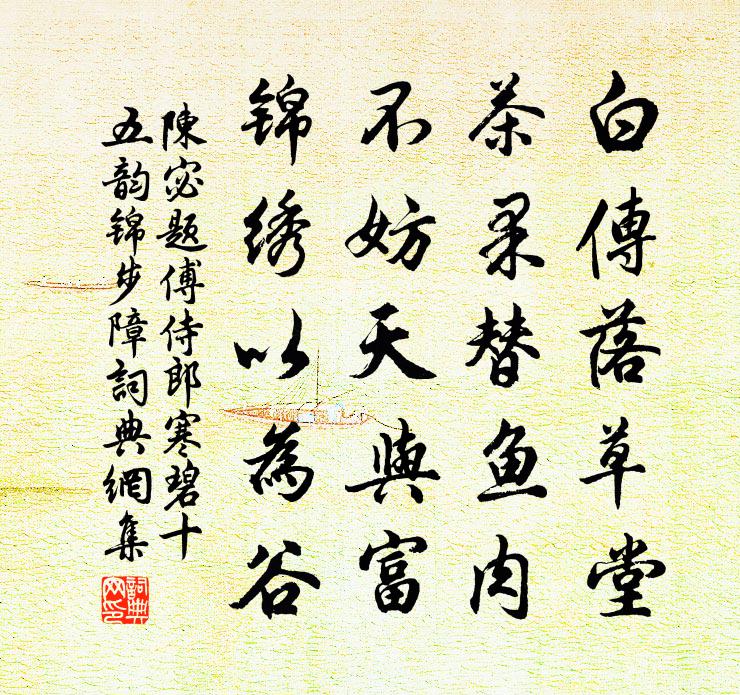 白傅落草堂
茶果替鱼肉
不妨天與富
锦绣以為谷
陳宓题傅侍郎寒碧十
五韵锦步障詞典網集
詞典
网印